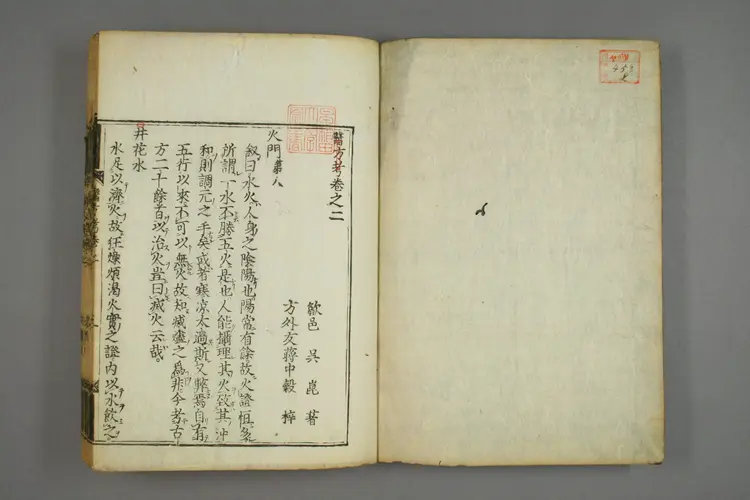 醫方考卷之二
歙邑 吳崑 著
方外友蔣中穀 梓
火門第八
叙曰水火人身之陰陽也陽常有餘故火證恒多
所謂一水不勝五火是也人能攝理其火致其沖
和則調元之手矣或者寒凉太過斯又弊焉自有
五行以來不可以無火故知滅盡之爲非今考古
方二十餘首以治火豈曰滅火云哉
井花水
水足以濟火故狂燥煩渴火實之證內以水飲之